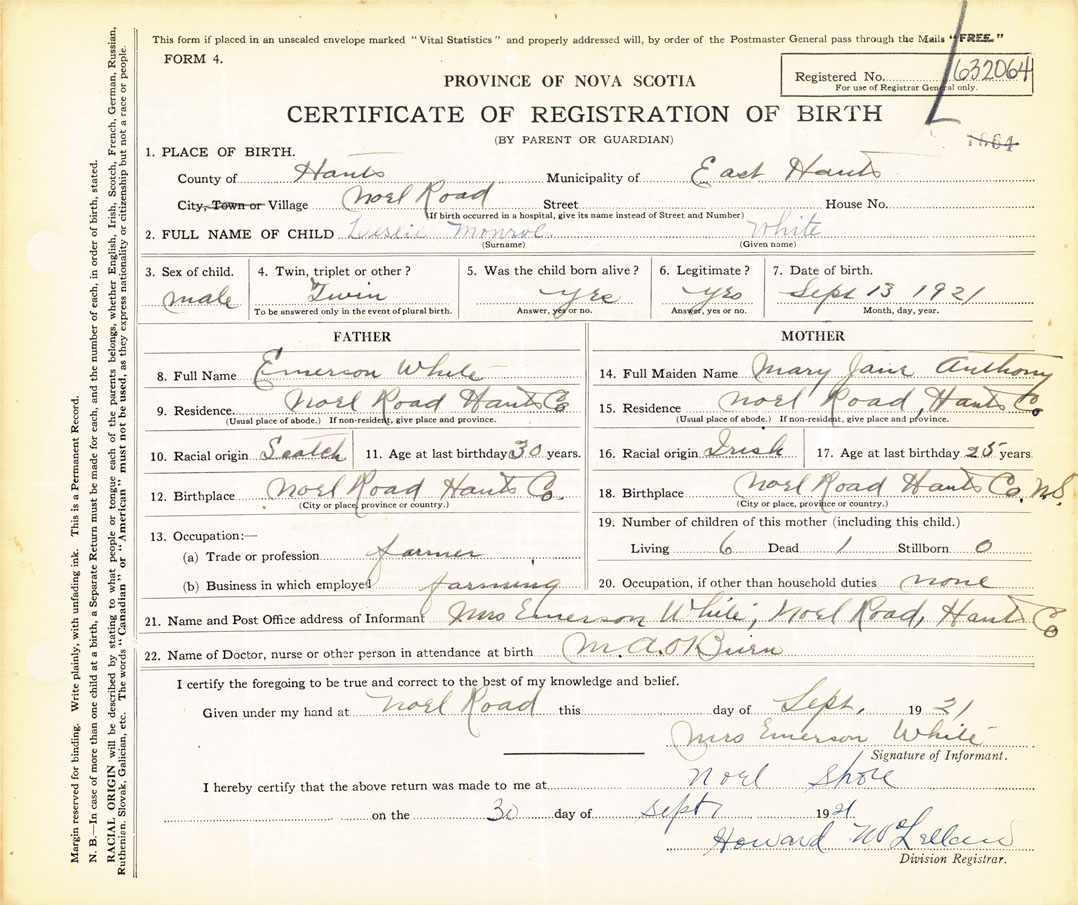 This form if placed in an unsealed envelope marked "Vital Statistics" and properly addressed will, by order of the Postmaster General pass through the Mails "FREE."
FORM 4.
PROVINCE OF NOVA SCOTIA
Registered No. 632064
For use of Registrar General only.
CERTIFICATE OF REGISTRATION OF BIRTH
(BY PARENT OR GUARDIAN)
1. PLACE OF BIRTH.
County of Hants Municipality of East Hants
City, Town or Village Noel Road Street House No.
(If birth occurred in a hospital, give its name instead of Street and Number)
2. FULL NAME OF CHILD Leslie Monroe White
(Surname) (Given name)
3. Sex of child. 4. Twin, triplet or other? 5. Was the child born alive? 6. Legitimate? 7. Date of birth.
male Twin yes yes Sept 13 1921
To be answered only in the event of plural birth. Answer, yes or no. Answer, yes or no. Month, day, year.
FATHER
8. Full Name Emerson White
9. Residence. Noel Road Hants Co
(Usual place of abode.) If non-resident, give place and province.
10. Racial origin Scotch 11. Age at last birthday 30 years.
12. Birthplace Noel Road Hants Co.
(City or place, province or country.)
13. Occupation:—
(a) Trade or profession farmer
(b) Business in which employed farming
MOTHER
14. Full Maiden Name Mary Jane Anthony
15. Residence Noel Road, Hants Co.
(Usual place of abode.) If non-resident, give place and province.
16. Racial origin Irish 17. Age at last birthday 25 years.
18. Birthplace Noel Road Hants Co. N.S.
(City or place, province or country.)
19. Number of children of this mother (including this child.)
Living 6 Dead 1 Stillborn 0
20. Occupation, if other than household duties none
21. Name and Post Office address of Informant Mrs Emerson White, Noel Road, Hants Co
22. Name of Doctor, nurse or other person in attendance at birth M.A. O'Brien
I certify the foregoing to be true and correct to the best of my knowledge and belief.
Given under my hand at Noel Road this day of Sept. 1921
Mrs Emerson White
Signature of Informant.
I hereby certify that the above return was made to me at Noel Shore
on the 30 day of Sept 1921
Howard McLellan
Division Registrar.
Margin reserved for binding. Write plainly, with unfading ink. This is a Permanent Record.
N. B.—In case of more than one child at a birth, a Separate Return must be made for each, and the number of each, in order of birth, stated.
RACIAL ORIGIN will be described by stating to what people or tongue each of the parents belongs, whether English, Irish, Scotch, French, German, Russian,
Ruthenian, Slovak, Galician, etc. The words "Canadian" or "American" must not be used, as they express nationality or citizenship but not a race or people.